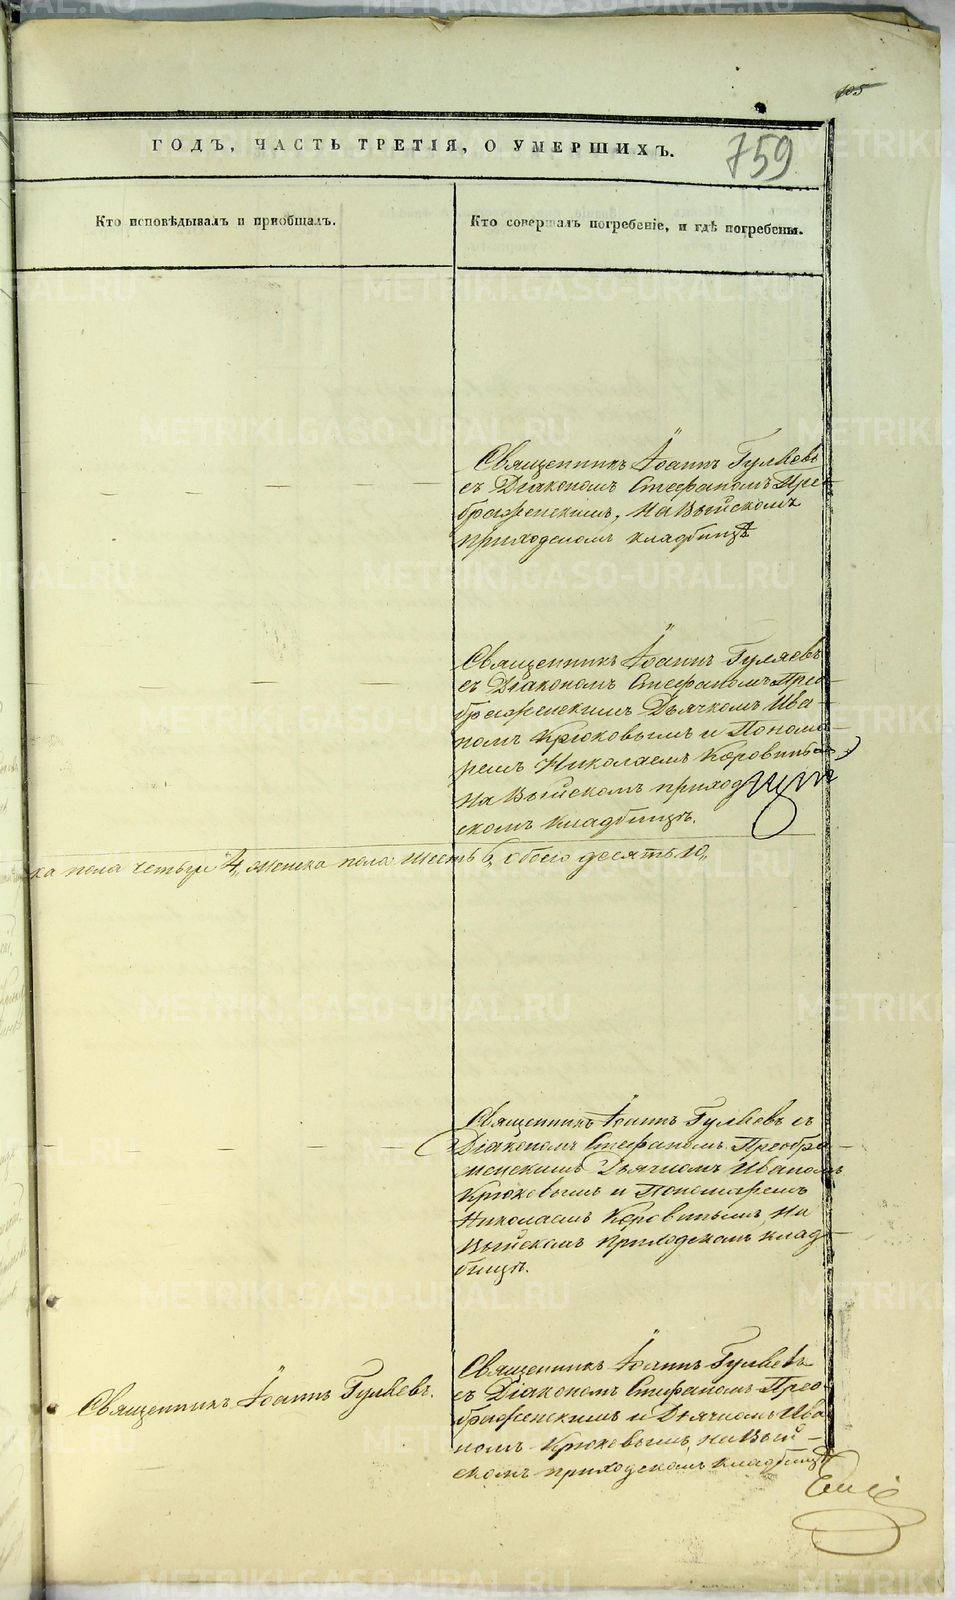 105
ГОДЪ, ЧАСТЬ ТРЕТІЯ, О УМЕРШИХЪ.
759
Кто исповѣдывалъ и пріобщалъ.
Кто совершалъ погребеніе, и гдѣ погребены.
Священникъ Іоаннъ Гуляевъ
съ Діакономъ Стефаномъ Прео-
браженскимъ, на Выйскомъ
приходскомъ кладбищѣ
Священникъ Іоаннъ Гуляевъ
съ Діакономъ Стефаномъ Прео-
браженскимъ Дьячкомъ Ива-
номъ Крюковымъ и Понома-
ремъ Николаемъ Коровинымъ,
на Выйскомъ приход
скомъ кладбищѣ.
ка пола четыре 4, женска пола шесть 6, обоего десять 10,
Священникъ Іоаннъ Гуляевъ съ
Діакономъ Стефаномъ Преобра-
женскимъ Дьячкомъ Иваномъ
Крюковымъ и Пономаремъ
Николаемъ Коровинымъ, на
Выйскомъ приходскомъ клад-
бищѣ.
Священникъ Іоаннъ Гуляевъ.
Священникъ Іоаннъ Гуляевъ
съ Діакономъ Стефаномъ Прео-
браженскимъ и Дьячкомъ Ива
номъ Крюковымъ, на Вый-
скомъ приходскомъ кладбищѣ
METRIKI.GASO-URAL.RU